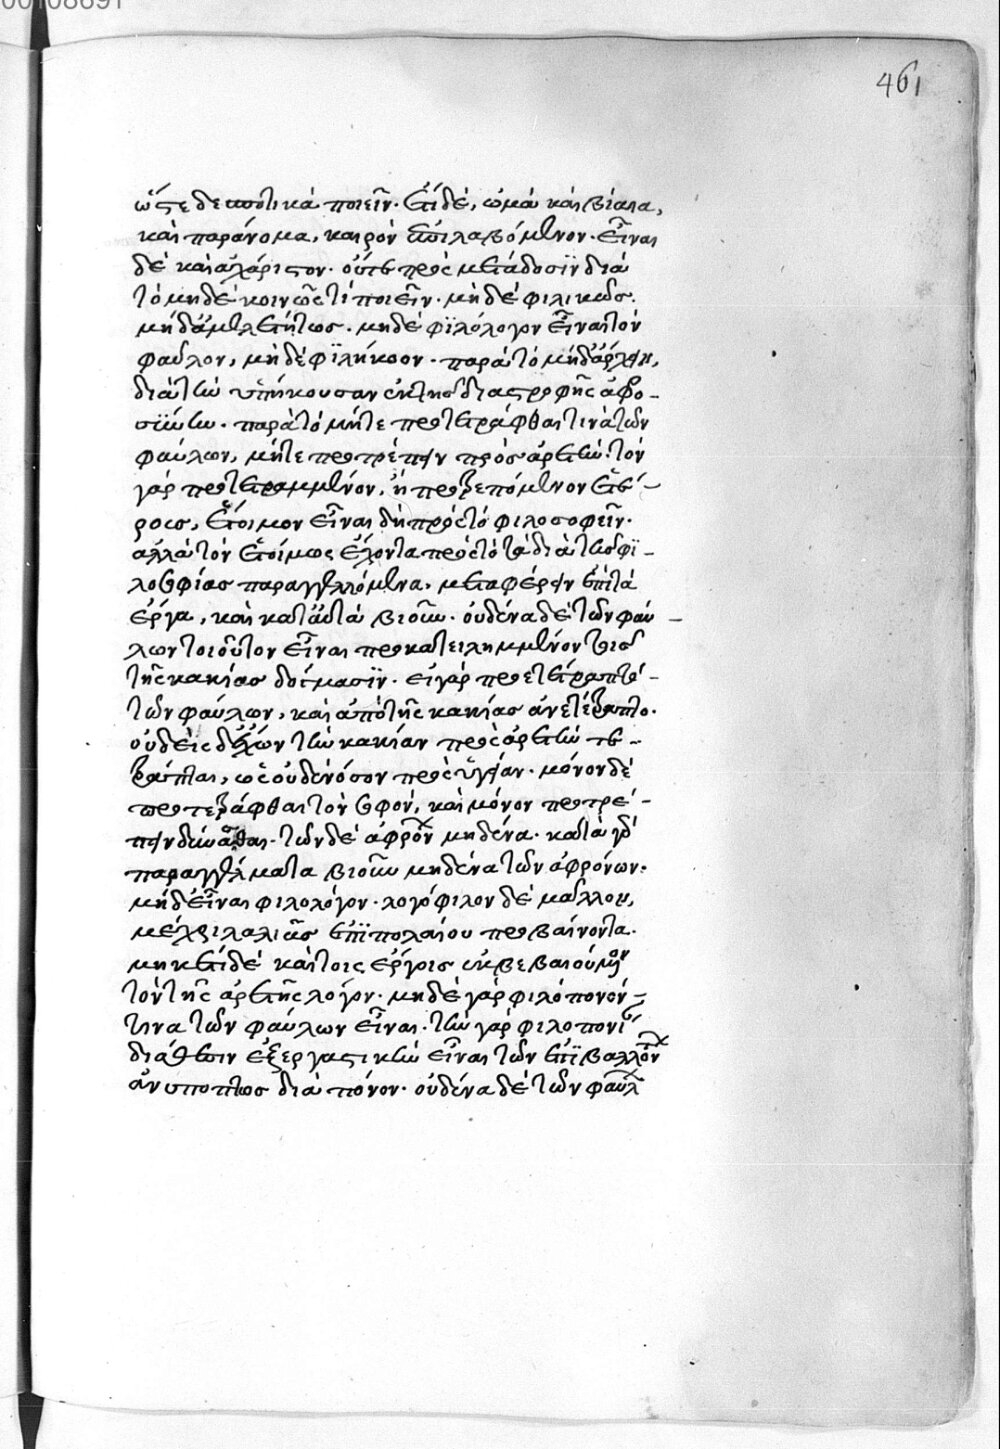 461
ὥςτε δεσποτικὰ ποιεῖν. ἔτι δὲ, ὠμὰ καὶ βίαια,
καὶ παράνομα, καιρὸν ἐπιλαβόμενον. εἶναι
δὲ καὶ ἀχάριστον. οὔτε πρὸς μετάδοσϊν διὰ
τὸ μηδὲ κοινῶς τί ποιεῖν. μηδὲ φιλικῶς.
μηδἀμελετήτως. μηδὲ φϊλόλογον εἶναι τὸν
φαῦλον, μηδὲ φϊλήκοον. παρὰ τὸ μηδἀρχὴν,
διὰ τὴν ὑπήκουσαν ἐκ τῆς διαστροφῆς ἀφρο-
σύνην. παρὰ τὸ μήτε προτετράφθαι τινὰ τῶν
φαύλων, μήτε προτρέπειν πρὸς ἀρετήν. τὸν
γὰρ προτετραμμένον, ἢ προτρεπόμενον ἑτέ-
ροις, ἕτοιμον εἶναι δὴ πρὸς τὸ φιλοσοφεῖν.
ἀλλὰ τὸν ἑτοίμως ἔχοντα πρὸς τὸ τὰ διὰ τῆς φϊ-
λοσοφίας παραγγελλόμενα. μεταφέρειν ἐπὶ τὰ
ἔργα, καὶ κατ' αὐτὰ βιοῦν. οὐδένα δὲ τῶν φαύ-
λων τοιοῦτον εἶναι προκατειλημμένον τοῖς
τῆς κακίας δόγμασϊν. εἰ γὰρ προετέτραπτό-
τῶν φαύλων, καὶ ἀπὸ τῆς κακίας ἀνετέτραπτο.
οὐδεὶς δ' ἔχων τὴν κακίαν πρὸς ἀρετὴν τέ-
τραπται, ὡς οὐδὲ νόσον πρὸς ὑγείαν. μόνον δὲ
προτετράφθαι τὸν σοφὸν, καὶ μόνον προτρέ-
πειν δύνασθαι. τῶν δὲ ἀφρόν μηδένα. κατὰ γὰρ
παραγγέλματα βιοῦν μηδένα τῶν ἀφρόνων.
μηδ' εἶναι φιλολόγον. λογόφιλον δὲ μᾶλλον,
μέχρι λαλιᾶς ἐπϊπολαίου προβαίνοντα.
μηκέτι δὲ καὶ τοῖς ἔργοις ἐκβεβαιούμενον
τὸν τῆς ἀρετῆς λόγον. μηδὲ γὰρ φιλόπονόν-
τινα τῶν φαύλων εἶναι. τὴν γὰρ φιλοπονί
διάθεσιν ἐξεργαστικὴν εἶναι τῶν ἐπϊβαλλόν
ἀνυπόπτως διὰ πόνον. οὐδένα δὲ τῶν φαύλ